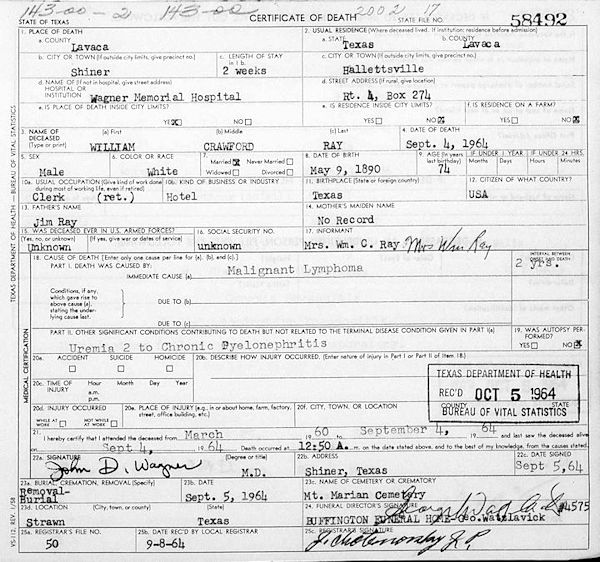 143-00-2 143-00 2002 17
STATE OF TEXAS CERTIFICATE OF DEATH STATE FILE NO. 58492
1. PLACE OF DEATH 2. USUAL RESIDENCE (Where deceased lived. If institution: residence before admission)
a. COUNTY Lavaca a. STATE Texas b. COUNTY Lavaca
b. CITY OR TOWN (If outside city limits, give precinct no.) Shiner c. LENGTH OF STAY in 1 b. 2 weeks c. CITY OR TOWN (If outside city limits, give precinct no.) Hallettsville
d. NAME OF (If not in hospital, give street address) HOSPITAL OR INSTITUTION Wagner Memorial Hospital d. STREET ADDRESS (If rural, give location) Rt. 4, Box 274
e. IS PLACE OF DEATH INSIDE CITY LIMITS? YES X NO e. IS RESIDENCE INSIDE CITY LIMITS? YES NO X f. IS RESIDENCE ON A FARM? YES X NO
3. NAME OF DECEASED (Type or print) (a) First WILLIAM (b) Middle CRAWFORD (c) Last RAY 4. DATE OF DEATH Sept. 4, 1964
5. SEX Male 6. COLOR OR RACE White 7. Married X Never Married Widowed Divorced 8. DATE OF BIRTH May 9, 1890 9. AGE (In years last birthday) 74 IF UNDER 1 YEAR Months Days IF UNDER 24 HRS. Hours Min.
10a. USUAL OCCUPATION (Give kind of work done during most of working life, even if retired) Clerk (ret.) 10b. KIND OF BUSINESS OR INDUSTRY Hotel 11. BIRTHPLACE (State or foreign country) Texas 12. CITIZEN OF WHAT COUNTRY? USA
13. FATHER'S NAME Jim Ray 14. MOTHER'S MAIDEN NAME No Record
15. WAS DECEASED EVER IN U.S. ARMED FORCES? (Yes, no, or unknown) (If yes, give war or dates of service) Unknown 16. SOCIAL SECURITY NO. unknown 17. INFORMANT Mrs. Wm. C. Ray Mrs Wm Ray
18. CAUSE OF DEATH [Enter only one cause per line for (a), (b), and (c).] INTERVAL BETWEEN ONSET AND DEATH
PART I. DEATH WAS CAUSED BY:
IMMEDIATE CAUSE (a) Malignant Lymphoma 2 yrs.
Conditions, if any, which gave rise to above cause (a), stating the underlying cause last.
DUE TO (b)
DUE TO (c)
PART II. OTHER SIGNIFICANT CONDITIONS CONTRIBUTING TO DEATH BUT NOT RELATED TO THE TERMINAL DISEASE CONDITION GIVEN IN PART I(a) 19. WAS AUTOPSY PERFORMED?
Uremia 2 to Chronic Pyelonephritis YES NO X
20a. ACCIDENT SUICIDE HOMICIDE 20b. DESCRIBE HOW INJURY OCCURRED. (Enter nature of injury in Part I or Part II of Item 18.)
20c. TIME OF INJURY Hour Month Day Year a.m. p.m.
TEXAS DEPARTMENT OF HEALTH
REC'D OCT 5 1964
BUREAU OF VITAL STATISTICS
20d. INJURY OCCURRED WHILE AT WORK NOT WHILE AT WORK 20e. PLACE OF INJURY (e.g., in or about home, farm, factory, street, office building, etc.) 20f. CITY, TOWN, OR LOCATION COUNTY STATE
21. I hereby certify that I attended the deceased from March 19 60 to September 4, 19 64 and last saw the deceased alive
on Sept 4, 19 64 Death occurred at 12:50 A. m. on the date stated above, and to the best of my knowledge, from the causes stated.
22a. SIGNATURE John D. Wagner (Degree or title) M.D. 22b. ADDRESS Shiner, Texas 22c. DATE SIGNED Sept 5,64
23a. BURIAL, CREMATION, REMOVAL (Specify) Removal-Burial 23b. DATE Sept. 5, 1964 23c. NAME OF CEMETERY OR CREMATORY Mt. Marian Cemetery
23d. LOCATION (City, town, or county) (State) Strawn Texas 24. FUNERAL DIRECTOR'S SIGNATURE BUFFINGTON FUNERAL HOME-Geo.Watzlavick #4575
25a. REGISTRAR'S FILE NO. 50 25b. DATE REC'D BY LOCAL REGISTRAR 9-8-64 25c. REGISTRAR'S SIGNATURE
TEXAS DEPARTMENT OF HEALTH — BUREAU OF VITAL STATISTICS
MEDICAL CERTIFICATION
VS-112 REV. 1/58